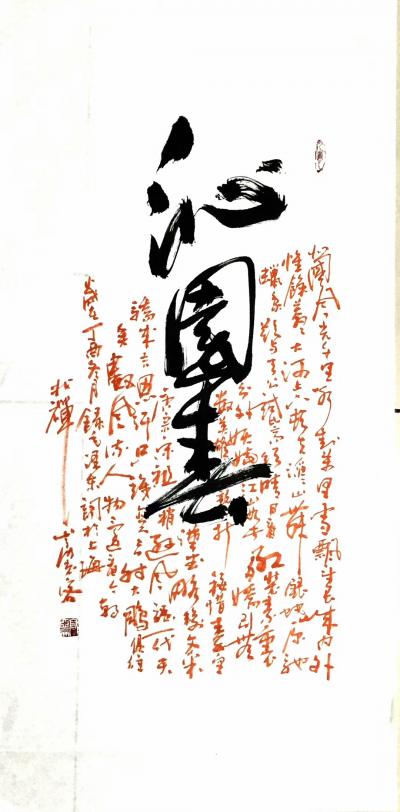 沁園春
北國風光千里冰封萬里雪飄望長城內外
惟餘莽莽大河上下頓失滔滔山舞銀蛇原馳
蠟象欲與天公試比高須晴日看紅裝素裹
分外妖嬈江山如此多嬌引無
數英雄競折腰惜秦皇
漢武略輸文采
唐宗宋祖稍遜風騷一代天
驕成吉思汗只識彎弓射大鵰俱往
矣數風流人物還看今朝
丁酉月錄毛澤東詞於上海
松禪